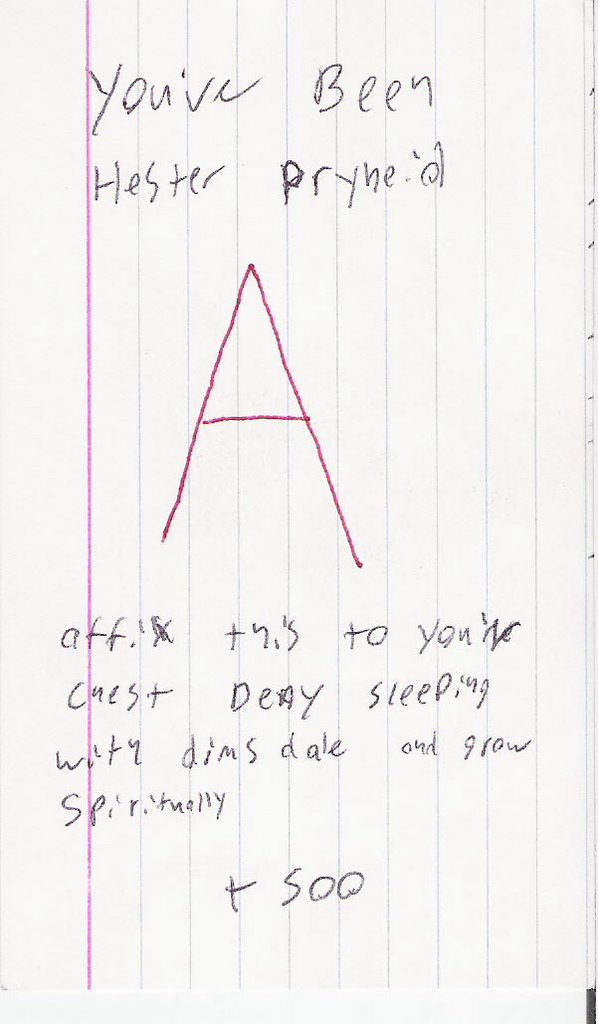 You've Been
Hester Pryne'd
A
affix this to you're
chest Deny sleeping
with dimsdale and grow
Spiritually
+ 500